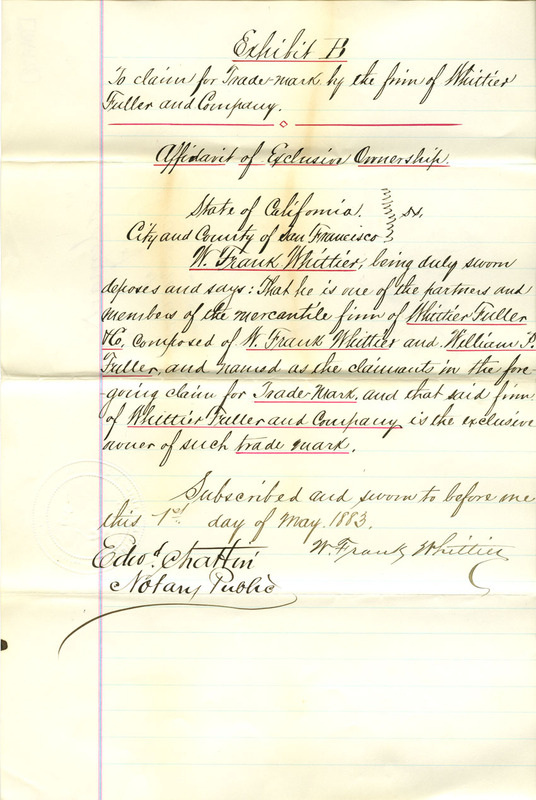 Exhibit B
To claim for Trade-mark by the firm of Whittier
Fuller and Company.
Affidavit of Exclusive Ownership.
State of California. } ss.
City and County of San Francisco }
W. Frank Whittier, being duly sworn
deposes and says: That he is one of the partners and
members of the mercantile firm of Whittier Fuller
&Co, composed of W. Frank Whittier and William P.
Fuller, and named as the claimants in the fore-
going claim for Trade-Mark, and that said firm
of Whittier Fuller and Company is the exclusive
owner of such trade mark.
Subscribed and sworn to before me
this 1st day of May. 1883.
W. Frank Whittier
Edwd. Chattin
Notary Public